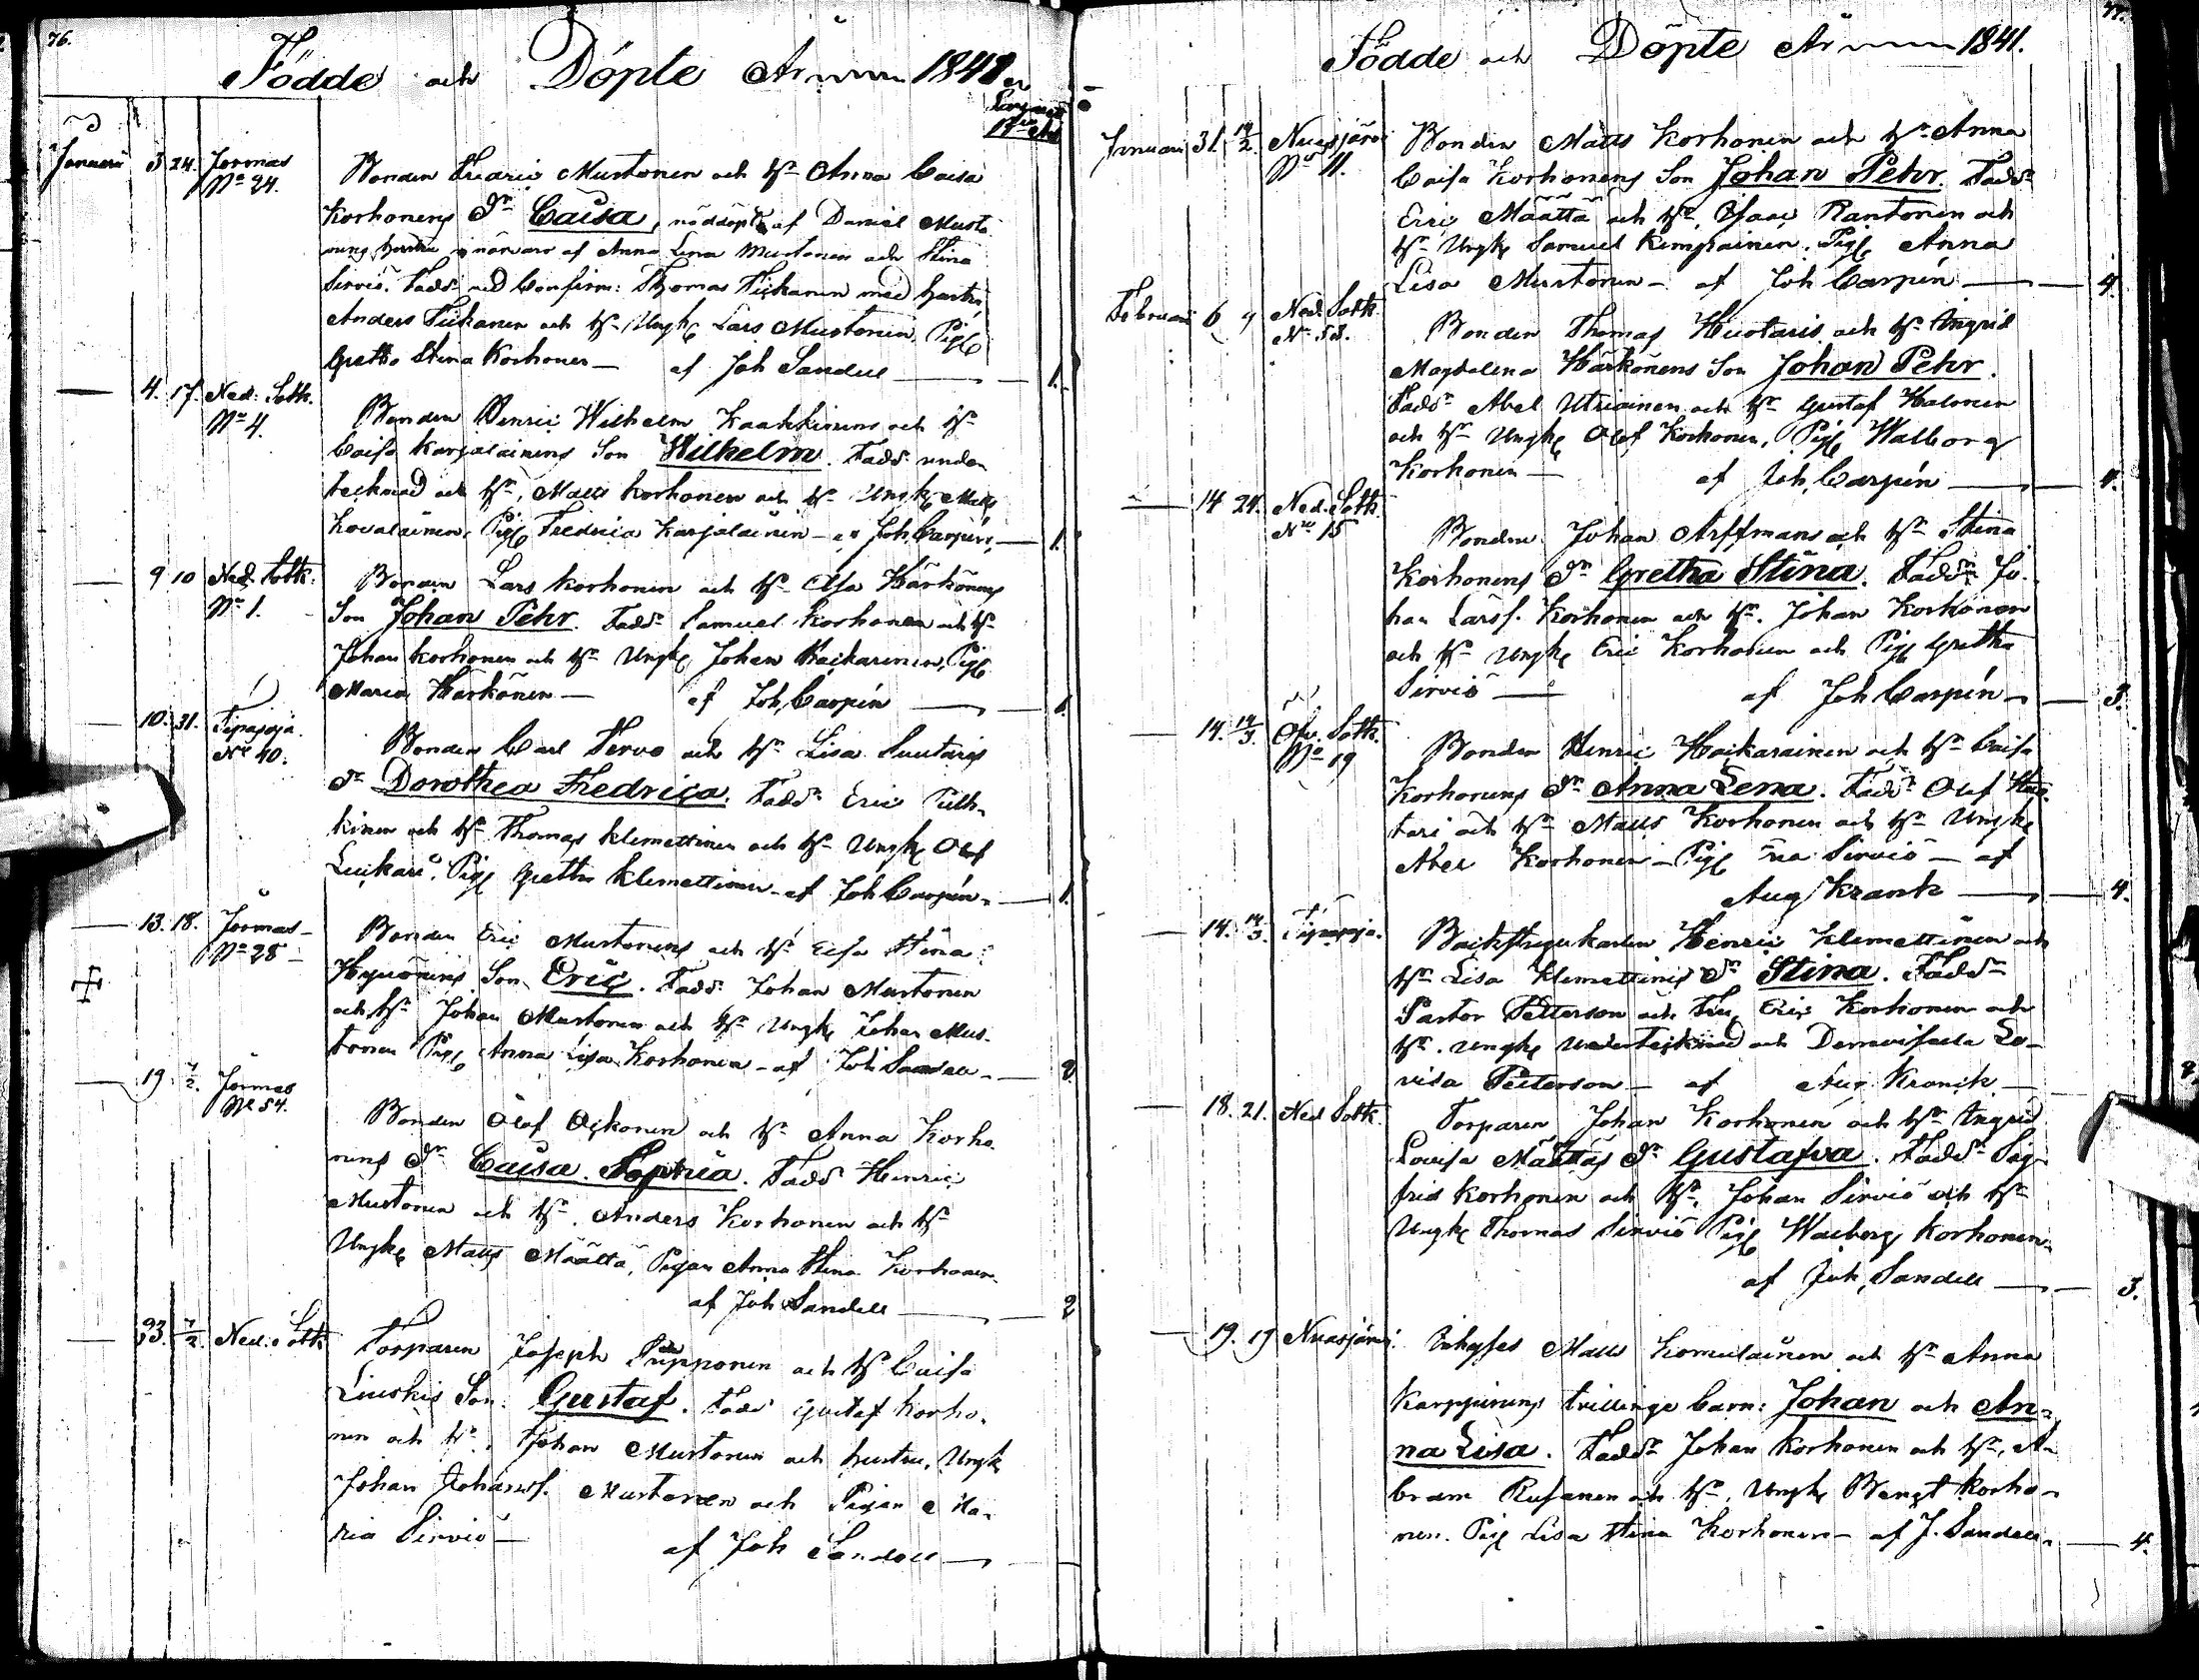 76.
Födde och Döpte År 1841
Januari 3 24. Jormas No 24.
Bonden Fredric Mustonen och h:u Anna Caisa
Korhonens Dr Caisa, nöddöpt af Daniel Musto
nens hustru i närvaro af Anna Lena Mustonen och Stina
Sirviö. Fadd: vid Confirm: Thomas Tiikanen med hustru,
Anders Tiikanen och hu Ungk Lars Mustonen, Pig
Gretha Stina Korhonen — af Joh Sandell — 1.
4. 17. Ned: Sotk. No 4.
Bonden Henric Wilhelm Kaakkinens och hu
Caisa Karjalainens Son Wilhelm. Fadd: under
tecknad och hu, Matts Korhonen och hu Ungk Matts
Kovalainen, Pig Fredrica Karjalainen — af Joh, Carpén, — 1.
9 10 Ned. Sotk. No 1.
Bonden Lars Korhonen och hu Elsa Härkönens
Son Johan Pehr. Fadd: Samuel Korhonen och hu
Johan Korhonen och hu Ungk Johan Haikarainen, Pig
Maria Härkönen — af Joh, Carpén — 1.
10. 31. Tipasoja No 40.
Bonden Carl Servo och hu Lisa Suutaris
Dr Dorothea Fredrica. Fadd: Eric Tuth-
kinen och hu Thomas Klemettinen och hu Ungk Olof
Leiikari, Pig Gretha Klemettinen — af Joh Carpén. — 1.
13. 18. Jormas No 28
Bonden Eric Mustonens och hu Elsa Stina
Hyvönens Son Eric. Fadd: Johan Mustonen
och hu Johan Mustonen och hu Ungk Johan Mus-
tonen Pig Anna Lisa Korhonen — af Joh Sandell — 2
19. 7/2. Jormas No 54.
Bonden Olof Oikonen och hu Anna Korho
nens Dr Caisa Sophia. Fadd: Henric
Mustonen och hu. Anders Korhonen och hu
Ungk Matts Määttä, Pigan Anna Stina Korhonen.
af Joh Sandell — 2
23. 7/2 Ned. Sotk
Torparen Joseph Piipponen och hu Caisa
Liuskis Son Gustaf. Fadd: Gustaf Korho-
nen och hu, Johan Mustonen och hustru, Ungk
Johan Johansf. Mustonen och Pigan Ma-
ria Sirviö — af Joh Sandell —
77.
Födde och Döpte År 1841.
Januari 31. 14/2. Nuasjärvi No 11.
Bonden Matts Korhonen och hu Anna
Caisa Korhonens Son Johan Pehr. Fadd:
Eric Määttä och hu, Isaac Rantonen och
hu Ungk Samuel Kemppainen, Pig Anna
Lisa Mustonen — af Joh Carpén — 4.
Februari 6 9 Ned. Sotk. No 58.
Bonden Thomas Huotaris och hu Ingrid
Magdalena Härkönens Son Johan Pehr.
Fadd: Abel Utriainen och hu Gustaf Halonen
och hu Ungk Olof Korhonen, Pig Walborg
Korhonen — af Joh, Carpén — 4.
14 24. Ned. Sotk. No 15
Bonden Johan Arffmans och hu Stina
Korhonens Dr Gretha Stina. Fadd: Jo-
han Larsf. Korhonen och hu. Johan Korhonen
och hu Ungk Eric Korhonen och Pig Gretha
Sirviö — af Joh Carpén — 3.
14. 14/3. Öfv. Sotk. No 19
Bonden Henric Haikarainen och hu Caisa
Korhonens Dr Anna Lena. Fadd: Olof Huo-
tari och hu Matts Korhonen och hu Ungk
Abel Korhonen — Pig Sirviö — af
Aug Krank — 4.
14. 14/3. Tipasoja.
Backstugukarlen Henric Klemettinen och
hu Lisa Klemettinens Dr Stina. Fadd:
Pastor Petterson och Fru, Eric Korhonen och
hu. Ungk Undertecknad och Demoiselle Lo-
visa Petterson — af Aug. Kranck —
18. 21. Ned Sotk.
Torparen Johan Korhonen och hu Ingrid
Lovisa Määttäs Dr Gustafva. Fadd: Sig-
frid Korhonen och hu, Johan Sirviö och hu
Ungk Thomas Sirviö Pig Walborg Korhonen.
af Joh, Sandell — 3.
19. 19 Nuasjärvi.
Inhyses Matts Komulainen och hu Anna
Karppinens tvillinge barn: Johan och An-
na Lisa. Fadd: Johan Korhonen och hu, A-
bram Rusanen och hu, Ungk Bengt Korho-
nen. Pig Lisa Stina Korhonen — af J. Sandell. — 4.